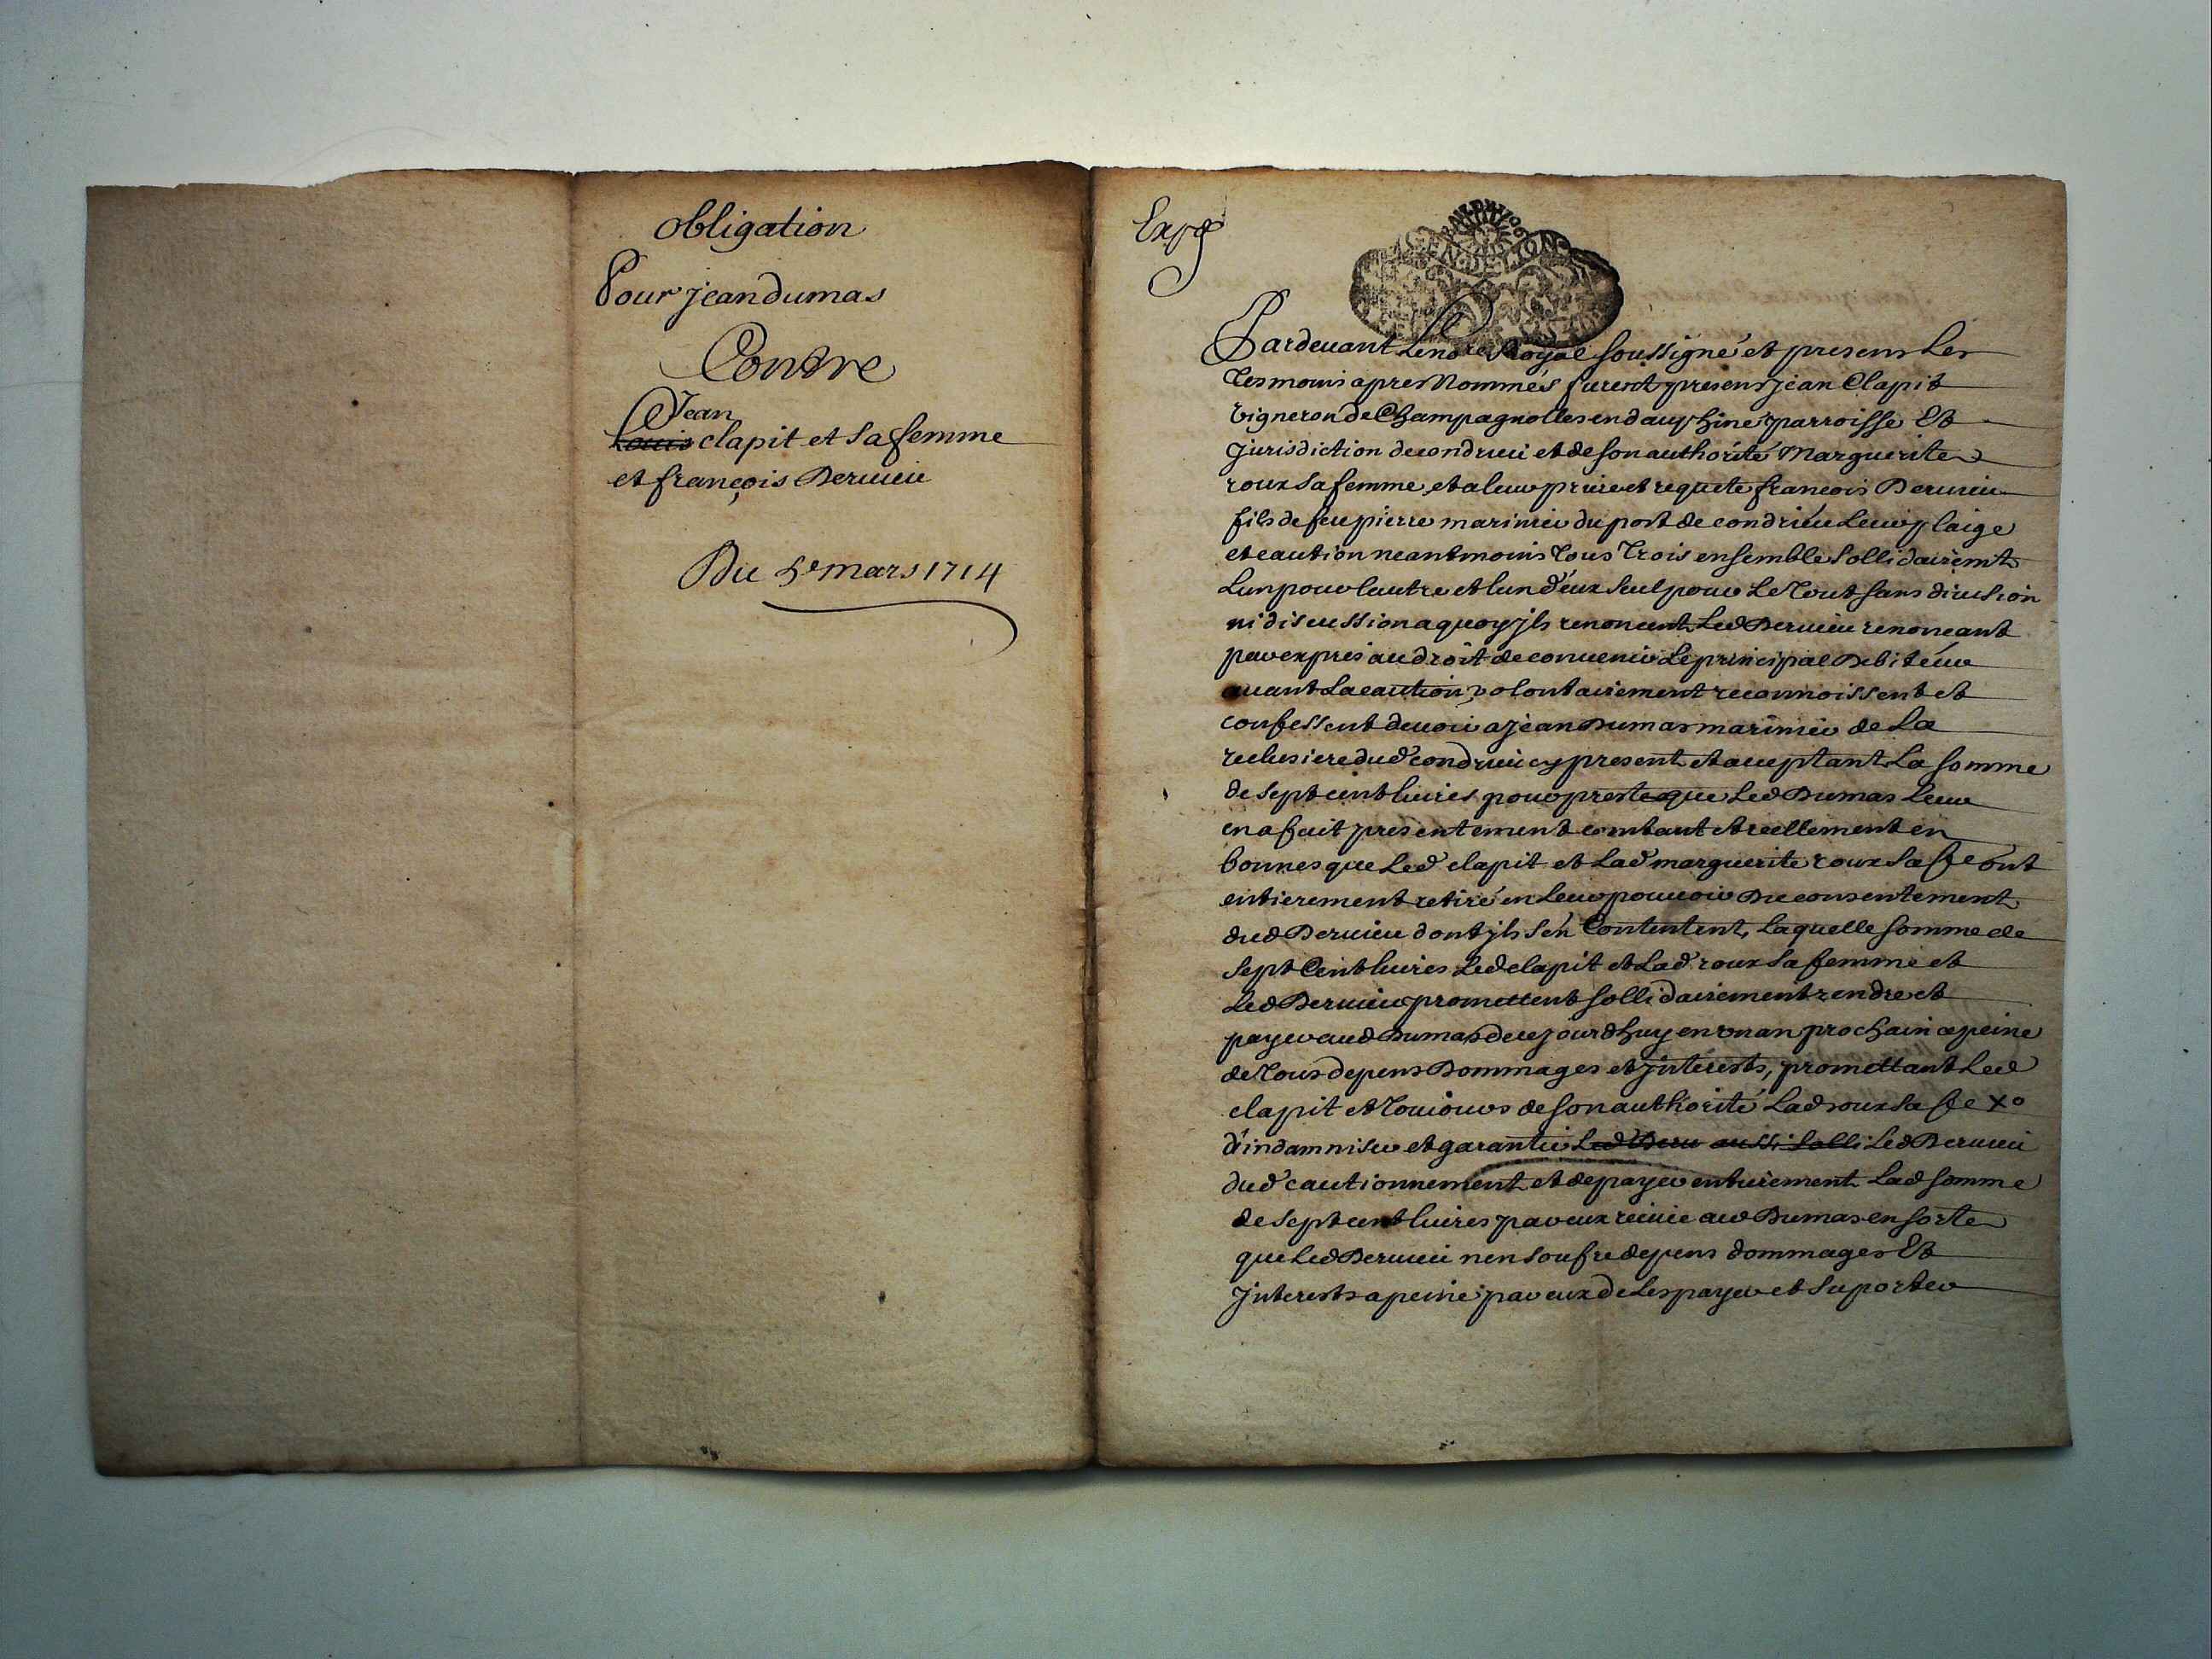 obligation
Pour jean dumas
Contre
Jean
Louis clapit et sa femme
et françois Dervieu
Du 5e mars 1714
Expé
Pardevant Le nore Royal soussigné et presens Les
Tesmoins apres Nommés furent presens jean Clapit
vigneron de Champagnolles en dauphiné parroisse Et
jurisdiction de condrieu et de son authorité Marguerite
roux sa femme, et a leur priere et requete francois Dervieu
fils de feu pierre marinier du port de condrieu Leur plaige
et caution neantmoins Tous Trois ensemble sollidairemt
Lun pour lautre et lun d'eux seul pour Le Tout sans division
ni discussion a quoy jls renoncent Led Dervieu renoncant
par expres au droit de convenir Le principal Debiteur
avant La caution, volontairement reconnoissent et
confessent devoir a jean Dumas marinier de La
reclusiere dud condrieu cy present et acceptant La somme
de sept cent livres pour preste que Led Dumas Leur
en a fait presentement comtant et reellement en
bonnes que Led clapit et Lad marguerite roux sa fe ont
entierement retiré en Leur pouvoir Du consentement
dud Dervieu dont jls s'en Contentent, Laquelle somme de
sept Cent livres Led clapit et Lad roux sa femme et
Led Dervieu promettent sollidairement rendre et
payer aud Dumas de ce jourdhuy en un an prochain a peine
de Tous depens Dommages et jnterests, promettant Led
clapit et Toujours de son authorité Lad roux sa fe Xo
d'indamniser et garantir Led Derv aussi solli Led Dervieu
dud cautionnement et de payer entierement Lad somme
de sept cent livres par eux reçue aud Dumas en sorte
que Led Dervieu nen soufre depens dommages Et
jnterests a peine par eux de Les payer et suporter